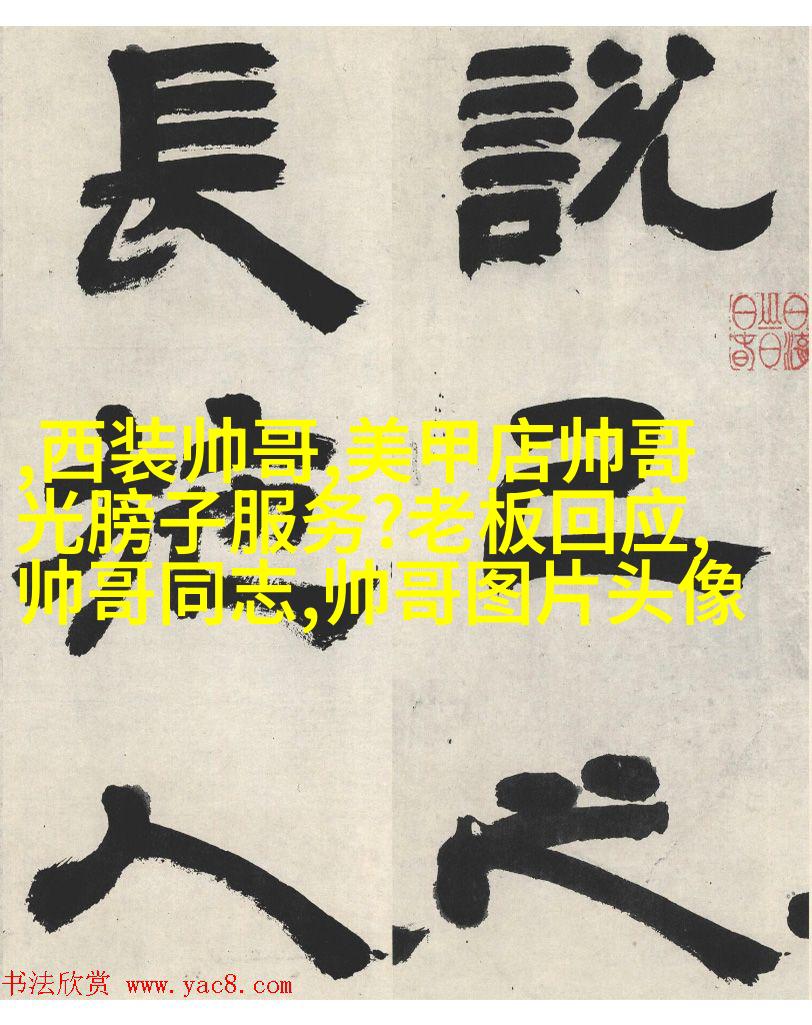 說己之
長施人
,西装帅哥,美甲店帅哥
光膀子服务?老板回应,
帅哥同志,帅哥图片头像
书法欣赏 www.yac8.com